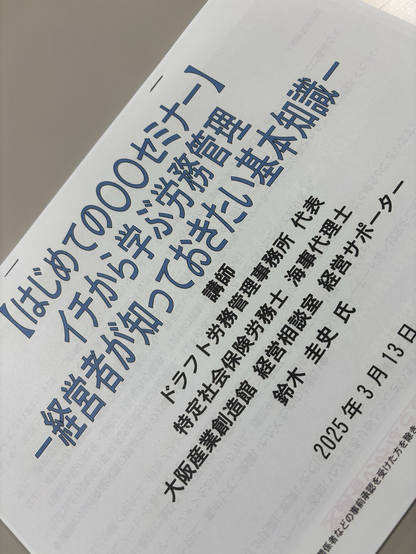 【はじめての〇〇セミナー】
イチから学ぶ労務管理
−経営者が知っておきたい基本知識−
講師
ドラフト労務管理事務所 代表
特定社会保険労務士 海事代理士
大阪産業創造館 経営相談室 経営サポーター
鈴木 圭史 氏
2025年3月13日
係者などの事前承認を受けた方を除き